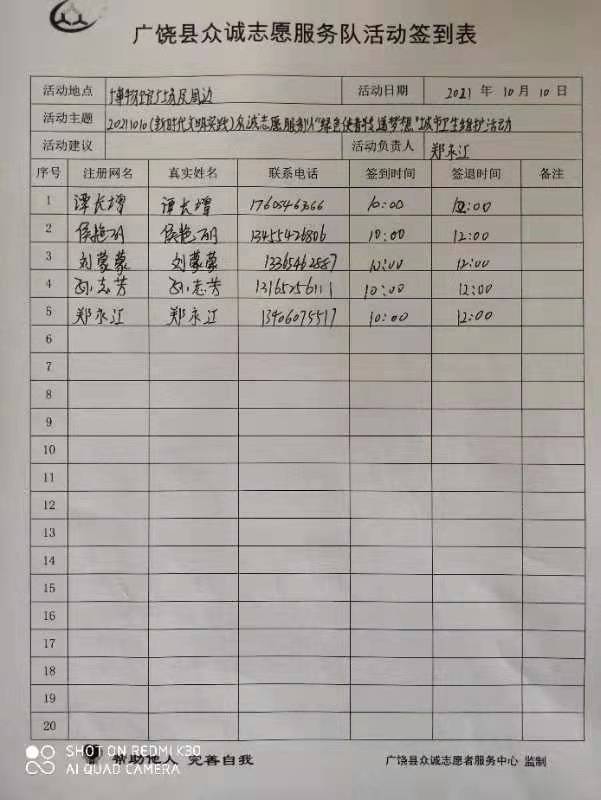 广饶县众诚志愿服务队活动签到表
活动地点 博物馆广场及周边 活动日期 2021 年 10 月 10 日
活动主题 20211010(新时代文明实践)众诚志愿服务队"绿色使者传递梦想"城市卫生维护活动
活动建议 活动负责人 郑永江
序号 注册网名 真实姓名 联系电话 签到时间 签退时间 备注
1 谭长增 谭长增 10:00 12:00
2 侯艳丽 侯艳丽 13455426806 10:00 12:00
3 刘蒙蒙 刘蒙蒙 13365462887 10:00 12:00
4 孙志芳 孙志芳 13165256111 10:00 12:00
5 郑永江 郑永江 13406075517 10:00 12:00
6
7
8
9
10
11
12
13
14
15
16
17
18
19
20
SHOT ON REDMI K30
AI QUAD CAMERA
帮助他人 完善自我 广饶县众诚志愿者服务中心 监制